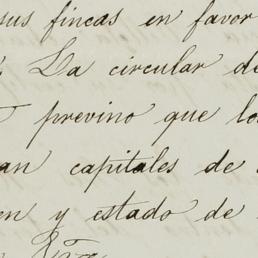 sus fincas en favor
La circular de
previno que lo
an capitales de
en y estado de